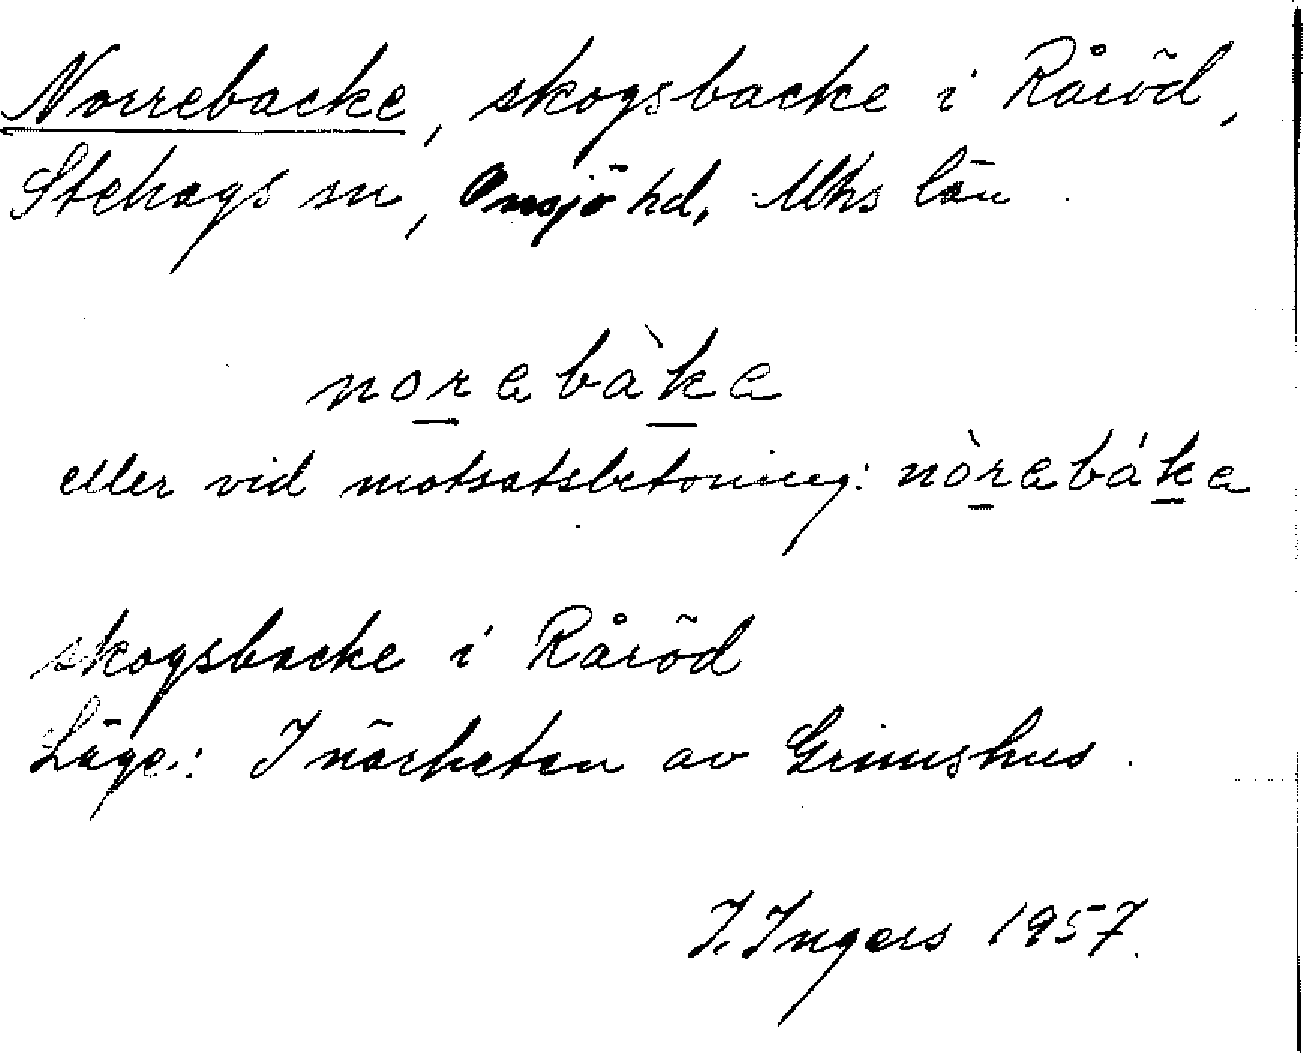 Norrebacke, skogsbacke i Råröd,
Stehags sn, Onsjö hd, Mhs län.
norebàke
eller vid motsatsbetoning: nòrebáke
skogsbacke i Råröd
Läge: I närheten av Grimshus.
I. Ingers 1957.